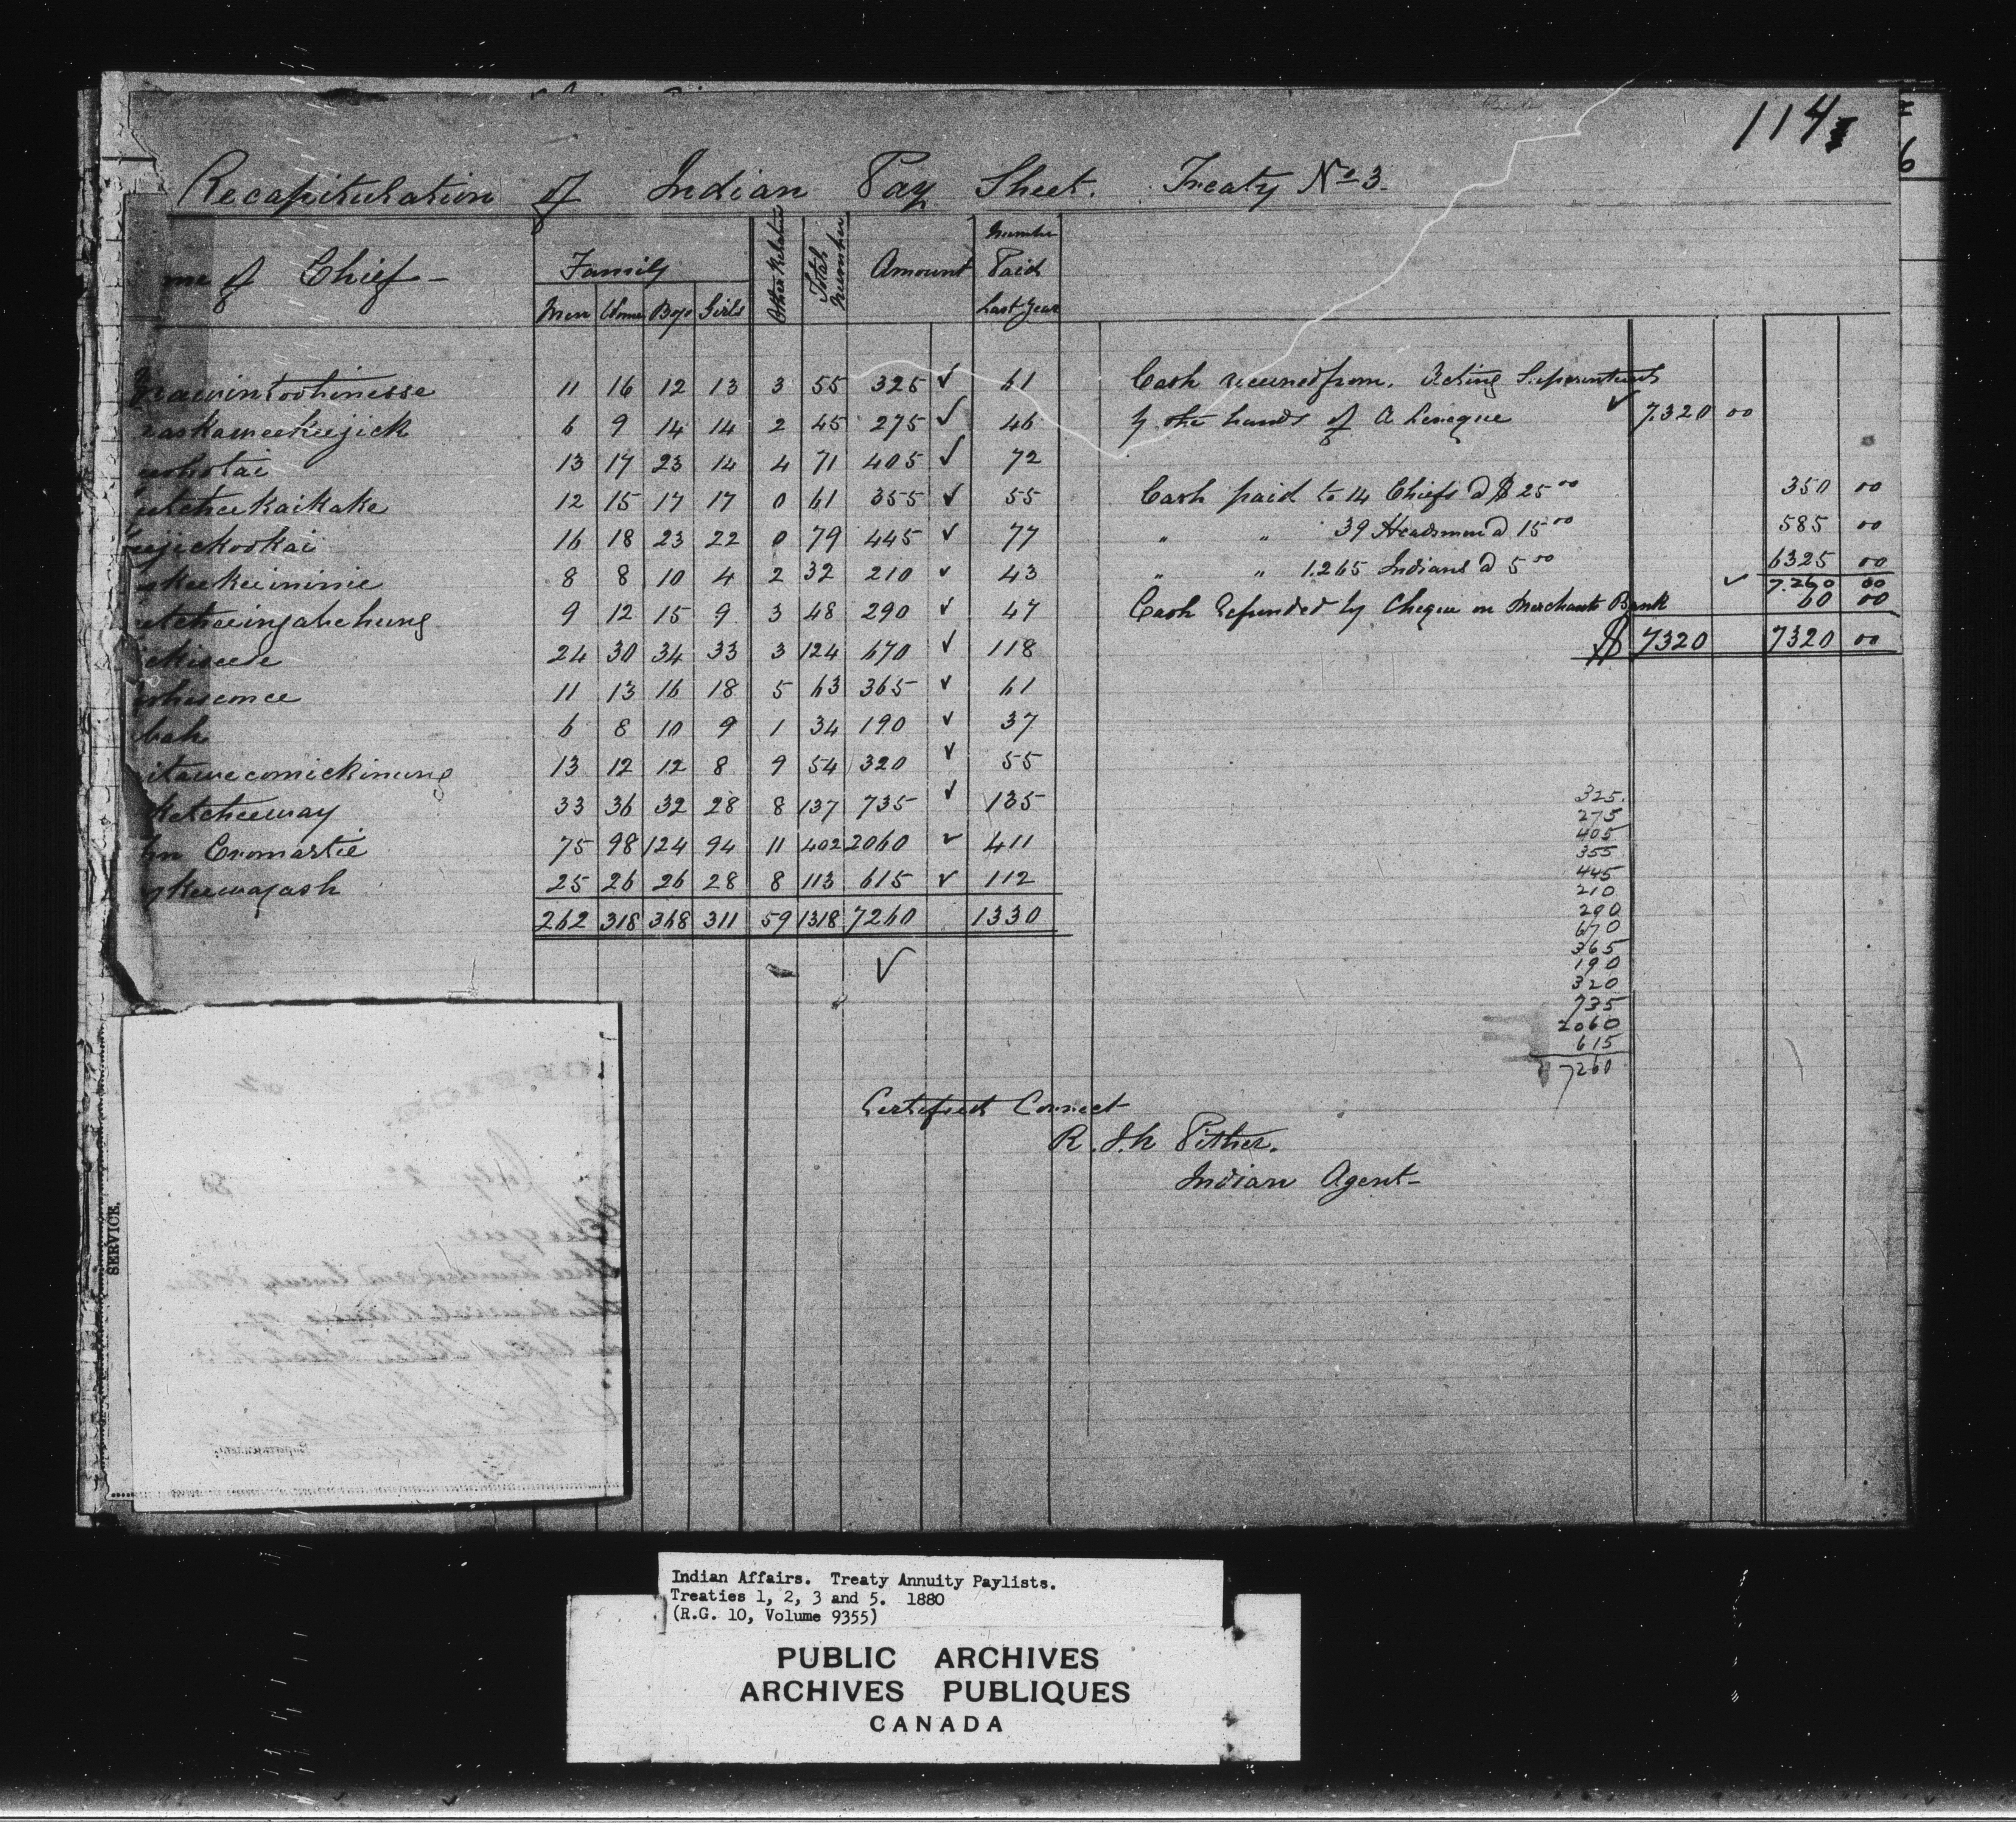 114
Recapitulation of Indian Pay Sheet. Treaty No 3.
me of Chief - Family Other Relation Total Number Amount Number Paid Last Year
Men Women Boys Girls
11 16 12 13 3 55 325 ✓ 61
raskaweekeejick 6 9 14 14 2 45 275 ✓ 46
13 17 23 14 4 71 405 ✓ 72
12 15 17 17 0 61 355 ✓ 55
16 18 23 22 0 79 445 ✓ 77
8 8 10 4 2 32 210 ✓ 43
9 12 15 9 3 48 290 ✓ 47
24 30 34 33 3 124 670 ✓ 118
11 13 16 18 5 63 365 ✓ 61
bah 6 8 10 9 1 34 190 ✓ 37
itawecomickinung 13 12 12 8 9 54 320 ✓ 55
ketcheeway 33 36 32 28 8 137 735 ✓ 135
hn Cromartie 75 98 124 94 11 402 2060 ✓ 411
keewajash 25 26 26 28 8 113 615 ✓ 112
262 318 368 311 59 1318 7260 1330
✓
Cash received from Acting Superintendt
by the hands of A Leveque ✓ 7320 00
Cash paid to 14 Chiefs @ $ 25 00 350 00
" " 39 Headsmen @ 15 00 585 00
" " 1.265 Indians @ 5 00 6325 00
✓ 7.260 00
Cash Refunded by Cheque on Merchants Bank 60 00
$ 7320 7320 00
325.
275
405
355
445
210
290
670
365
190
320
735
2060
615
7260
Certified Correct
R. J. N Pither.
Indian Agent -
SERVICE.
Indian Affairs. Treaty Annuity Paylists.
Treaties 1, 2, 3 and 5. 1880
(R.G. 10, Volume 9355)
PUBLIC ARCHIVES
ARCHIVES PUBLIQUES
CANADA